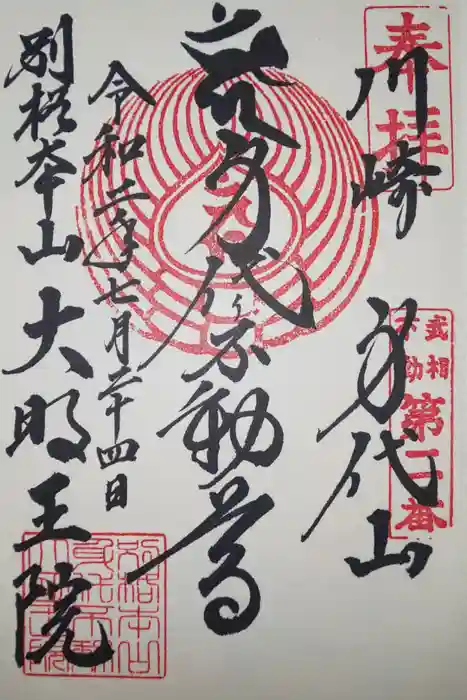 奉拝
川崎
身代山
武相
不動
第二番
身代り不動尊
令和二年七月二十四日
別格本山
大明王院